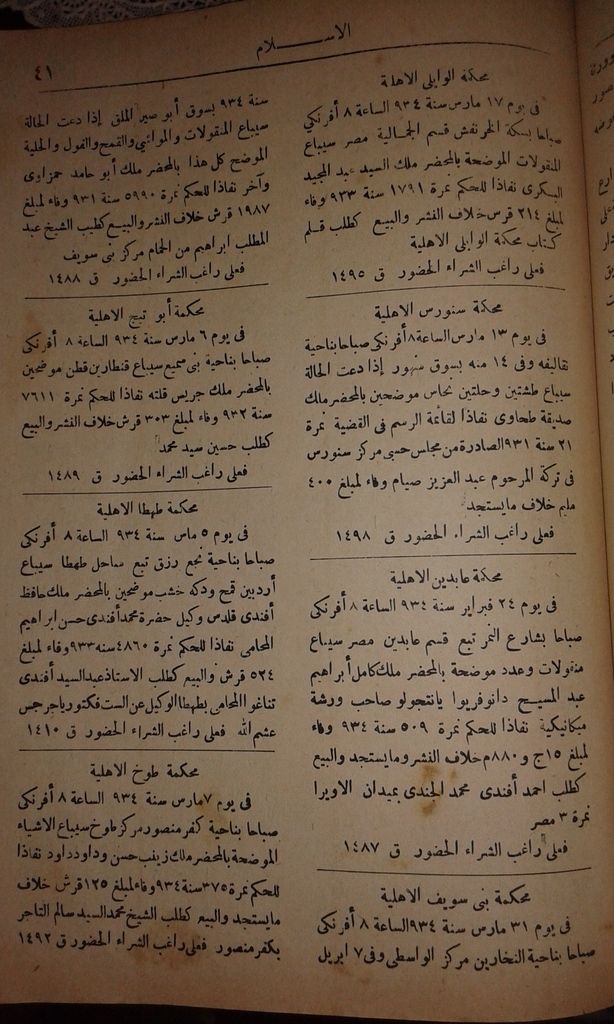 الاســـلام
٤١
محكمة الوايلى الاهلية
فى يوم ١٧ مارس سنة ٩٣٤ الساعة ٨ أفرنكى
صباحا بسكة الخرنفش قسم الجمالية مصر سيباع
المنقولات الموضحة بالمحضر ملك السيد عبد المجيد
السكرى نفاذا للحكم نمرة ١٧٩١ سنة ٩٣٣ وفاء
لمبلغ ٢١٤ قرس خلاف النشر والبيع كطلب قلم
كتاب محكمة الوايلى الاهلية
فعلى راغب الشراء الحضور ق ١٤٩٥
محكمة سنورس الاهلية
فى يوم ١٣ مارس الساعة ٨ أفرنكى صباحا بناحية
نقاليفه وفى ١٤ منه بسوق سنهور إذا دعت الحالة
سيباع طشتين وحلتين نحاس موضحين بالمحضر ملك
صديقة طحاوى نفاذا لقائمة الرسم فى القضية نمرة
٢١ سنة ٩٣١ الصادرة من مجاس حسبى مركز سنورس
فى تركة المرحوم عبد العزيز صيام وفاء لمبلغ ٤٠٠
مليم خلاف مايستجد
فعلى راغب الشراء الحضور ق ١٤٩٨
محكمة عابدين الاهلية
فى يوم ٢٤ فبراير سنة ٩٣٤ الساعة ٨ أفرنكى
صباحا بشارع النمر تبع قسم عابدين مصر سيباع
منقولات وعدد موضحة بالمحضر ملك كامل أبراهيم
عبد المسيح دانوفريوا يانتجولو صاحب ورشة
ميكانيكية نفاذا للحكم نمرة ٥٠٩ سنة ٩٣٤ وفاء
لمبلغ ١٥ج و٨٨٠م خلاف النشر ومايستجد والبيع
كطلب احمد أفندى محمد الجندى بميدان الاوبرا
نمرة ٣ مصر
فعلى راغب الشراء الحضور ق ١٤٨٧
محكمة بنى سويف الاهلية
فى يوم ٣١ مارس سنة ٩٣٤ الساعة ٨ أفرنكى
صباحا بناحية النخارين مركز الواسطى وفى ٧ ابريل
سنة ٩٣٤ بسوق أبو صير الملق إذا دعت الحالة
سيباع المنقولات والمواشى والقمح والفول والحلية
الموضح كل هذا بالمحضر ملك أبو حامد حمزاوى
وآخر نفاذا للحكم نمرة ٥٩٩٠ سنة ٩٣١ وفاء لمبلغ
١٩٨٧ قرش خلاف النشر والبيع كطيب الشيخ عبد
المطلب ابراهيم من الحمام مركز بنى سويف
فعلى راغب الشراء الحضور ق ١٤٨٨
محكمة أبو تيج الاهلية
فى يوم ٦ مارس سنة ٩٣٤ الساعة ٨ أفرنكى
صباحا بناحية بنى سميع سيباع قنطارين قطن موضحين
بالمحضر ملك جريس قلته نفاذا للحكم نمرة ٧٦١١
سنة ٩٣٢ وفاء لمبلغ ٣٠٣ قرش خلاف النشر والبيع
كطلب حسين سيد محمد
فعلى راغب الشراء الحضور ق ١٤٨٩
محكمة طهطا الاهلية
فى يوم ٥ ماس سنة ٩٣٤ الساعة ٨ أفرنكى
صباحا بناحية نجع رزق تبع ساحل طهطا سيباع
أردبين قمح ودكه خشب موضحين بالمحضر ملك حافظ
أفندى قلدس وكيل حضرة محمد أفندى حسن ابراهيم
المحامى نفاذا للحكم نمرة ٤٨٦٠ سنه ٩٣٣ وفاء لمبلغ
٥٢٤ قرش والبيع كطلب الاستاذ عبد السيد أفندى
تناغو المحامى بطهطا الوكيل عن الست فكتوريا جرجس
عشم الله فعلى راغب الشراء الحضور ق ١٤١٠
محكمة طوخ الاهلية
فى يوم ٧ مارس سنة ٩٣٤ الساعة ٨ أفرنكى
صباحا بناحية كفر منصور مركز طوخ سيباع الاشياء
الموضحة بالمحضر ملك زينب حسن وداود داود نفاذا
للحكم نمرة ٣٧٥ سنة ٩٣٤ وفاء لمبلغ ١٢٥ قرش خلاف
مايستجد والبيع كطلب الشيخ محمد السيد سالم التاجر
بكفر منصور فعلى راغب الشراء الحضور ق ١٤٩٢